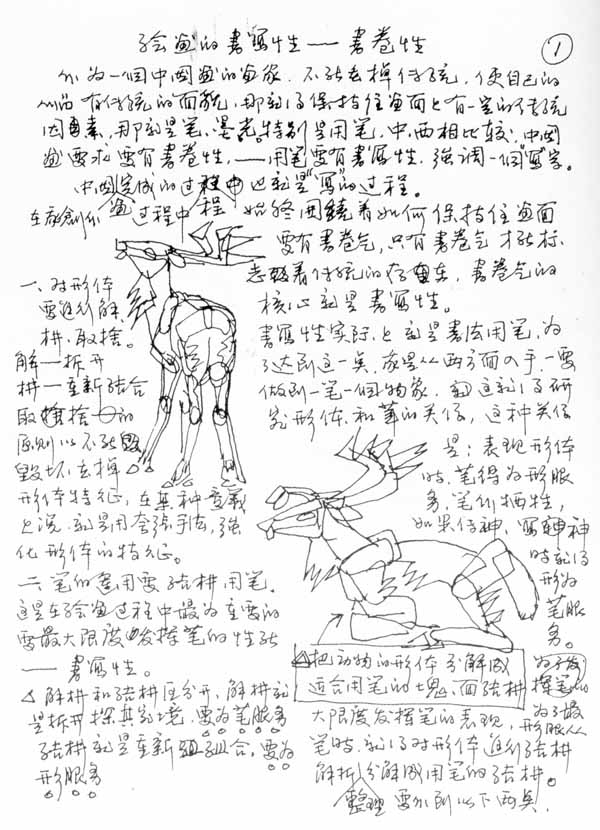 绘画的書寫性——書卷性
①
作为一個中國畫的畫家.不能去掉传统,使自己的
作品有传统的面貌,那就得保持住画面上有一定的传统
因素,那就是笔、墨。特别是用笔.中西相比较.中國
画要求要有書卷性,——用笔要有書寫性.强調一個“寫”字。
中國画完成的过程也就是“寫”的过程。
在創作过程中始终围繞着如何保持住画面
要有書卷气,只有書卷气才能标
志着传统的存在,書卷气的
核心就是書寫性。
一、对形体
要進行解
構.取捨。
解—拆开
構—重新结合
取捨—捨的
原则以不能
毁坏、去掉
形体特征,在某种意義
上说.就是用夸張手法,强
化形体的特征。
二、笔的運用要结構用笔.
这是在绘画过程中最为重要的
要最大限度发挥笔的性能
——書寫性。
△解構和结構区分开,解構就
是拆开探其究境,要为笔服务
结構就是重新组合,要为
形服务
書寫性实际上就是書法用笔,为
了达到这一点,应是从两方面入手,一要
做到一笔一個物象,这就得研
究形体和笔的关係,这种关係
是:表现形体
时,笔得为形服
务,笔作牺牲,
如果传神,寫神
时就得
形为
笔服
务。
△把动物的形体分解成
适合用笔的塊、面结構
为了发
挥笔的
大限度发挥笔的表现,
为了最
形服从
笔时.就得对形体進行结構
解析分解成用笔的结構。
整理 要作到以下两点